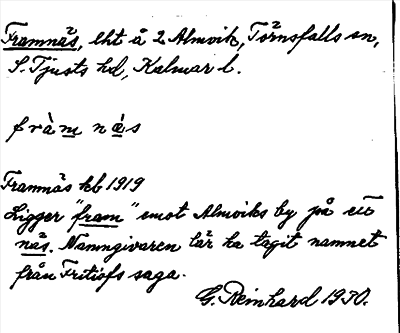 Framnäs, lht å 2 Almvik, Törnsfalls sn,
S. Tjusts hd, Kalmar l.
fràm näs
Framnäs kb 1919
Ligger "fram" emot Almviks by på ett
näs. Namngivaren lär ha tagit namnet
från Fritiofs saga.
G. Reinhard 1930.